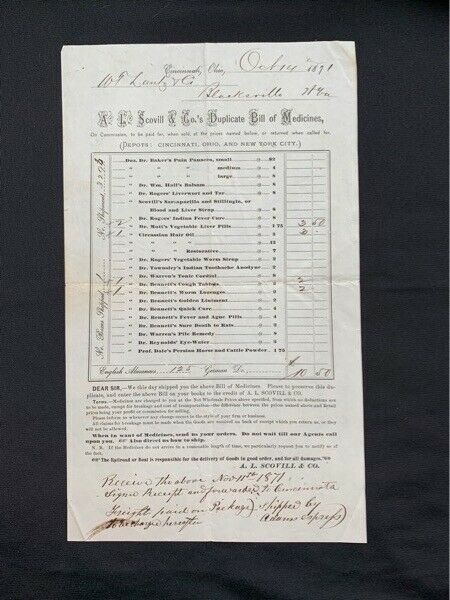 Cincinnati, Ohio, Oct 14 1871
Blacksville W Va
A. L. Scovill & Co.'s Duplicate Bill of Medicines,
On Commission, to be paid for, when sold, at the prices named below, or returned when called for.
(DEPOTS: CINCINNATI, OHIO, AND NEW YORK CITY.)
Doz. Dr. Baker's Pain Panacea, small
" " " medium
" " " large
" Dr. Wm. Hall's Balsam
" Dr. Rogers' Liverwort and Tar
" Scovill's Sarsaparilla and Stillingia, or
Blood and Liver Syrup
" Dr. Rogers' Indian Fever Cure
2 " Dr. Mott's Vegetable Liver Pills 1 75 3 50
1 " Circassian Hair Oil 3
" " " Restorative
" Dr. Rogers' Vegetable Worm Syrup
" Dr. Townsley's Indian Toothache Anodyne
" Warren's Tonic Cordial
1 " Dr. Bennett's Cough Tablets 2
1 " Dr. Bennett's Worm Lozenges 2
" Dr. Bennett's Golden Liniment
" Dr. Bennett's Quick Cure
" Dr. Bennett's Fever and Ague Pills
" Dr. Bennett's Sure Death to Rats
" Dr. Warren's Pile Remedy
" Dr. Reynolds' Eye-Water
" Prof. Date's Persian Horse and Cattle Powder 1 75
English Almanac 125 German Do. $10 50
DEAR SIR,—We this day shipped you the above Bill of Medicines. Please to preserve this du-
plicate, and enter the above Bill on your books to the credit of A. L. SCOVILL & CO.
Terms.—Medicines are charged to you at the Net Wholesale Prices above specified, from which no deductions are
to be made, except for breakage and cost of transportation—the difference between the prices named above and Retail
prices being your profit or commission for selling.
Please to advise us whenever any change occurs in the style of your firm or business.
All claims for breakage must be made when the goods are received on back of receipt which you return us, or they
will not be allowed.
When in want of Medicines, send in your orders. Do not wait till our Agents call
upon you. Also direct us how to ship.
N. B. If the Medicines do not arrive in a reasonable length of time, we particularly request you to notify us of
the fact.
The Railroad or Boat is responsible for the delivery of Goods in good order, and for all damages.
A. L. SCOVILL & CO.
Receive the above Nov 11th 1871
Signe Receipt and forwarded to Cincinnata
Freight paid on Package) Shipped by
to be charged hereafter Adams Express